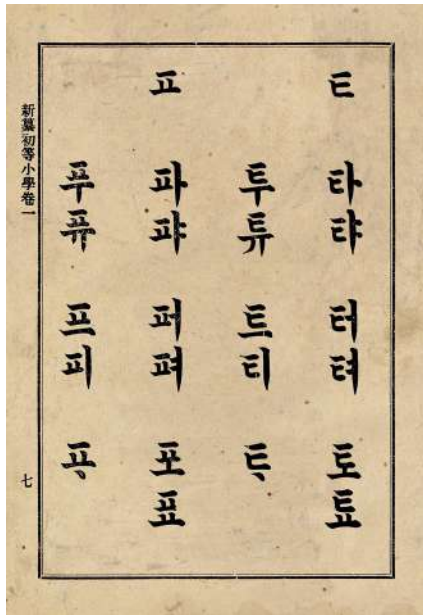 ㅌ
타탸 터텨 토툐
투튜 트티 ᄐᆞ
ㅍ
파퍄 퍼펴 포표
푸퓨 프피 ᄑᆞ
新纂初等小學卷一
七